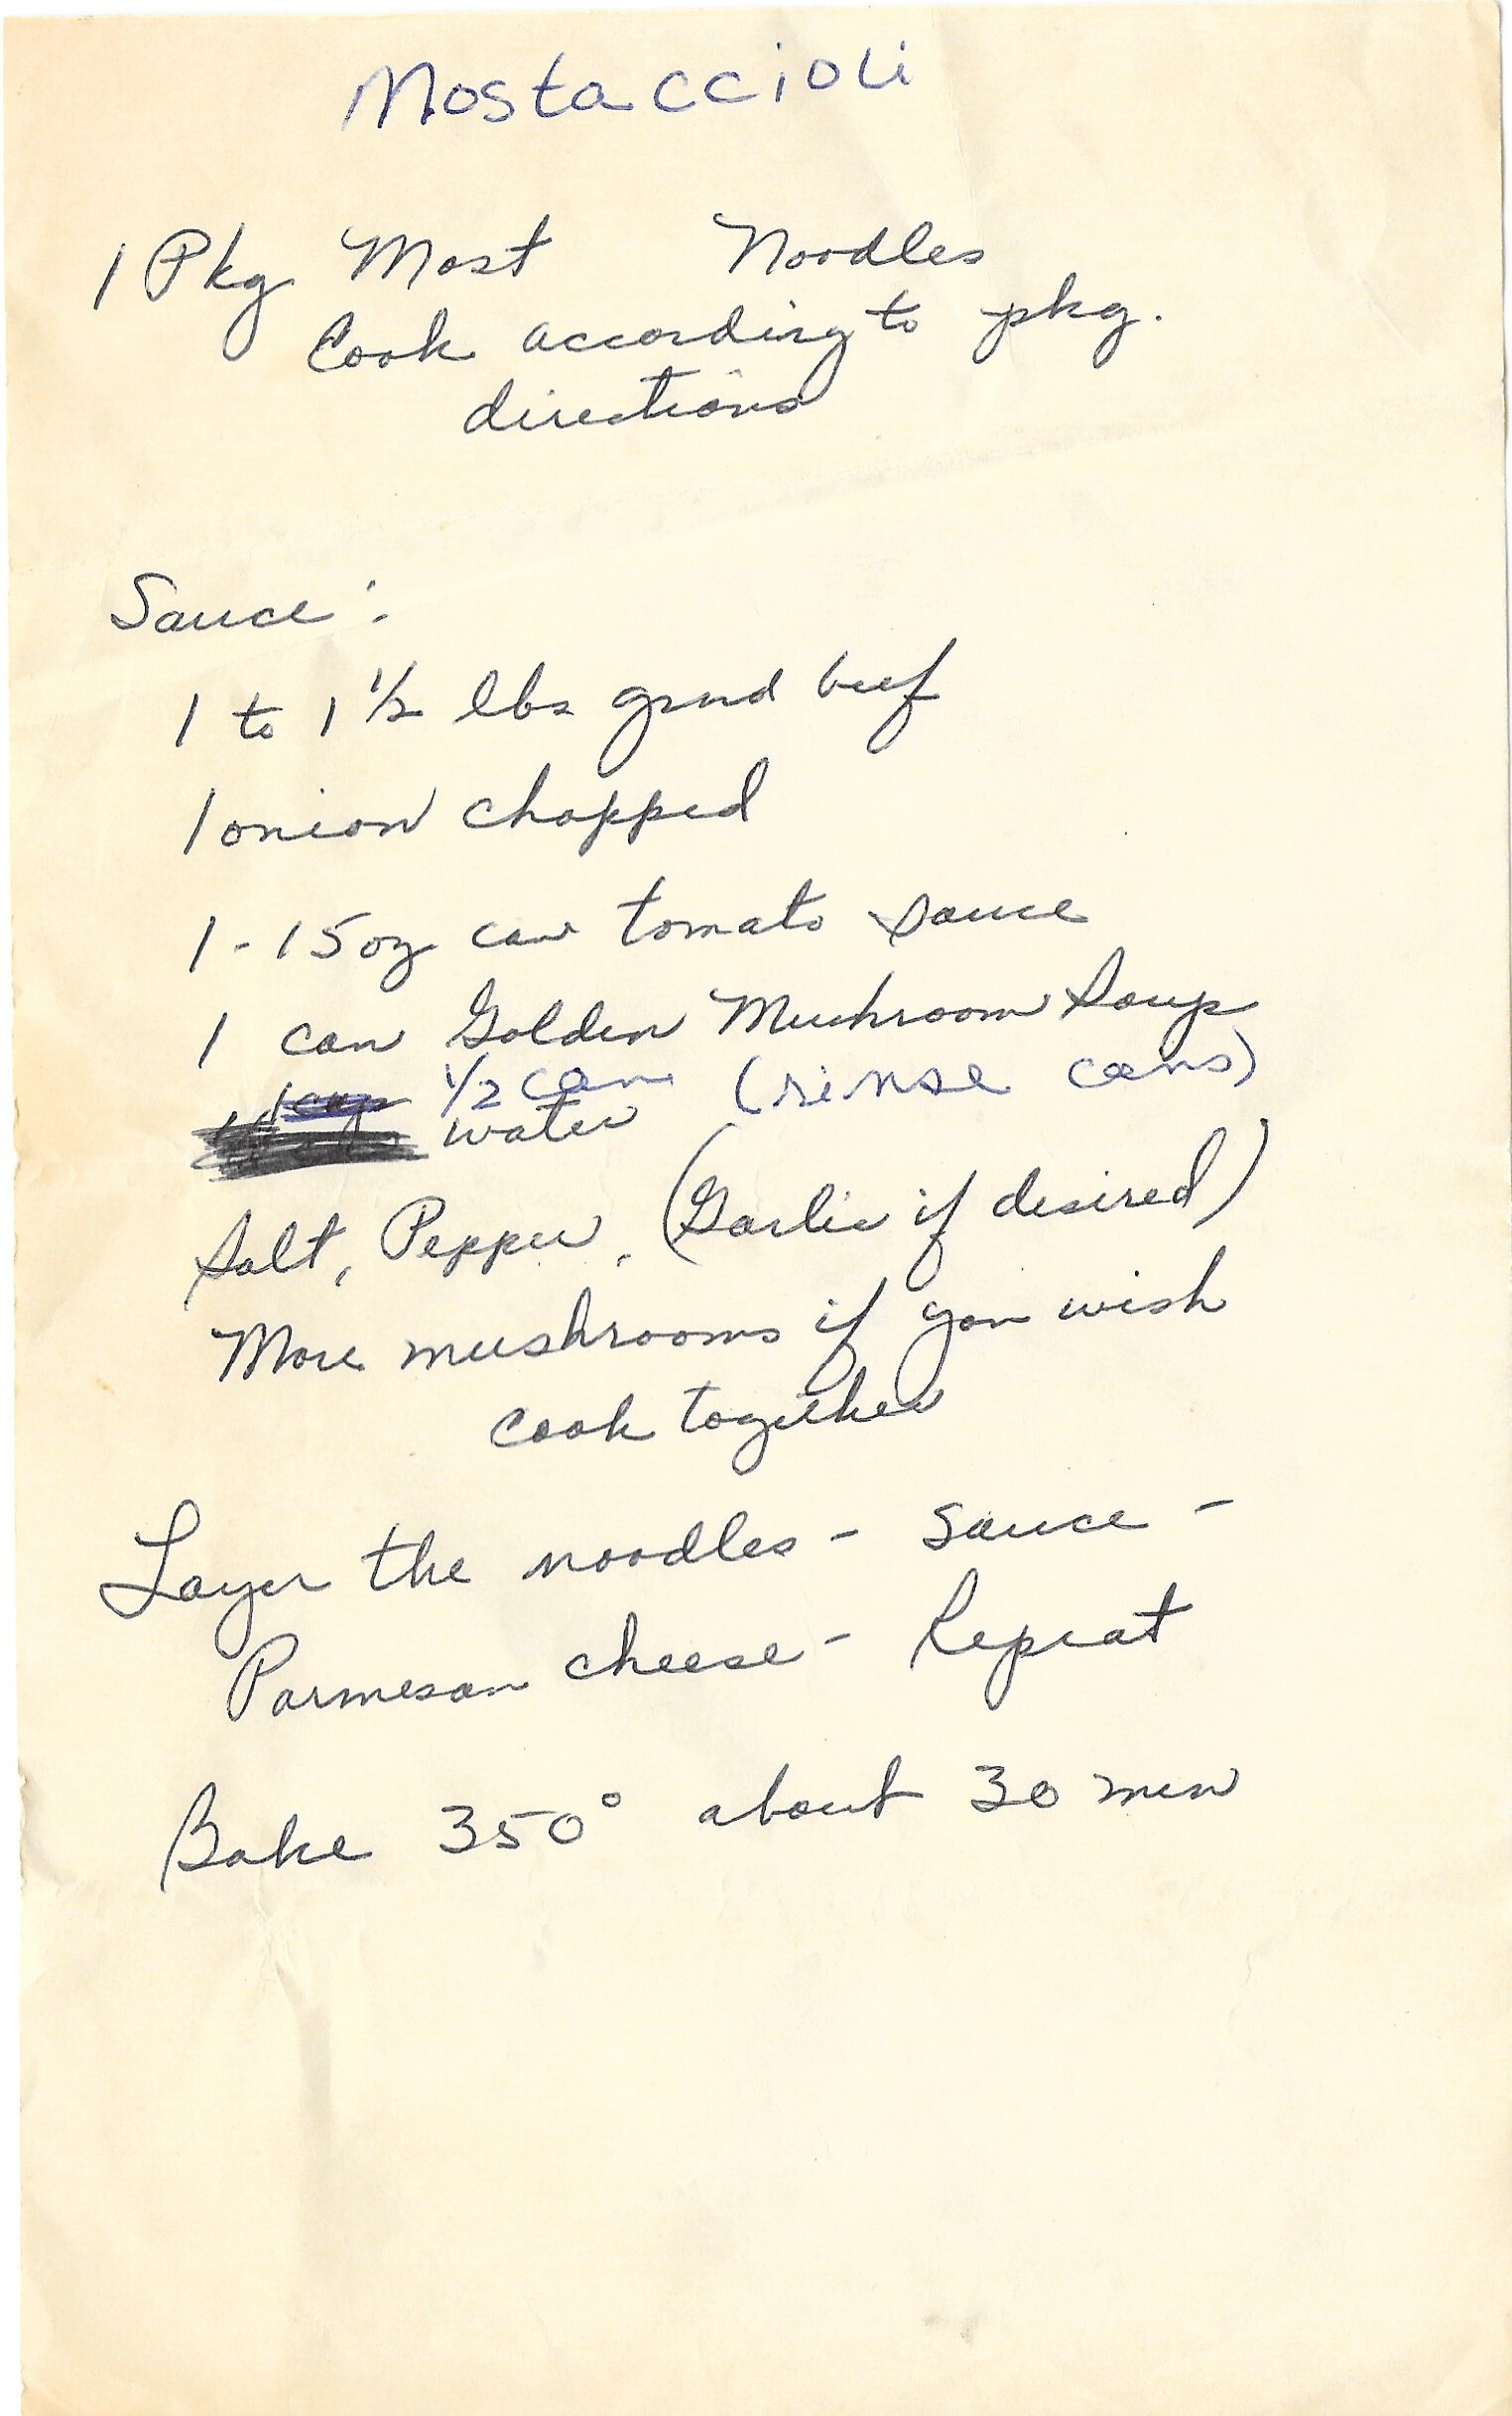 Mostaccioli
1 Pkg Most Noodles
Cook according to pkg.
directions
Sauce:
1 to 1 1/2 lbs grnd beef
1 onion chopped
1-15 oz can tomato sauce
1 can Golden Mushroom Soup
1/2 can (rinse cans)
water
Salt, Pepper, (Garlic if desired)
More mushrooms if you wish
cook together
Layer the noodles - sauce -
Parmesan cheese - Repeat
Bake 350° about 30 min